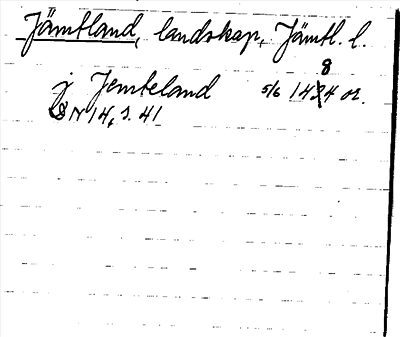 Jämtland, landskap, Jämtl. l.
j Jemteland 5/6 1484 or.
SN 14, s. 41